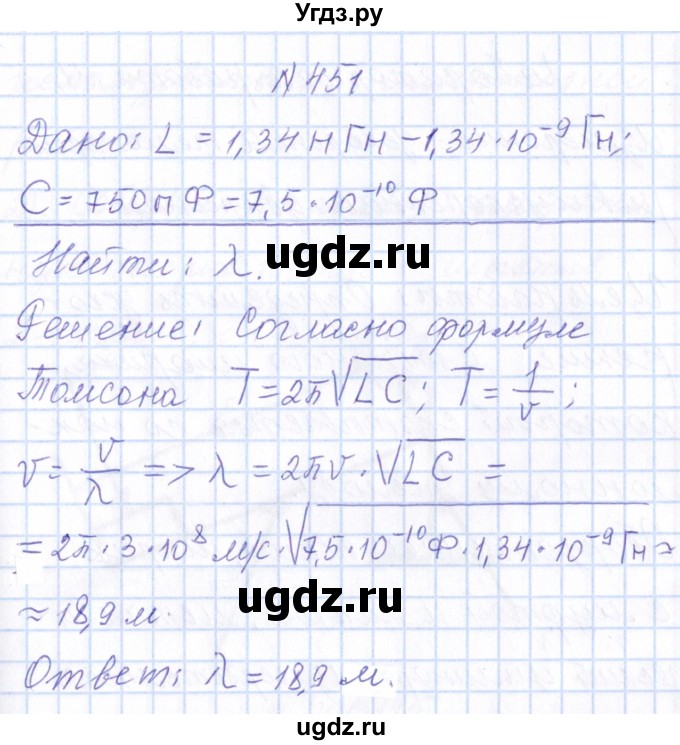 Угдз.ру
N 451
Дано: L = 1,34 нГн – 1,34 · 10⁻⁹ Гн;
C = 750 пФ = 7,5 · 10⁻¹⁰ Ф
ugdz.ru
Найти: λ.
Решение: Согласно формуле
Томсона T = 2π√LC; T = 1/ν;
ν = v/λ => λ = 2πv · √LC =
= 2π · 3 · 10⁸ м/с · √7,5 · 10⁻¹⁰ Ф · 1,34 · 10⁻⁹ Гн ≈
≈ 18,9 м.
ugdz.ru
Ответ: λ = 18,9 м.
ugdz.ru